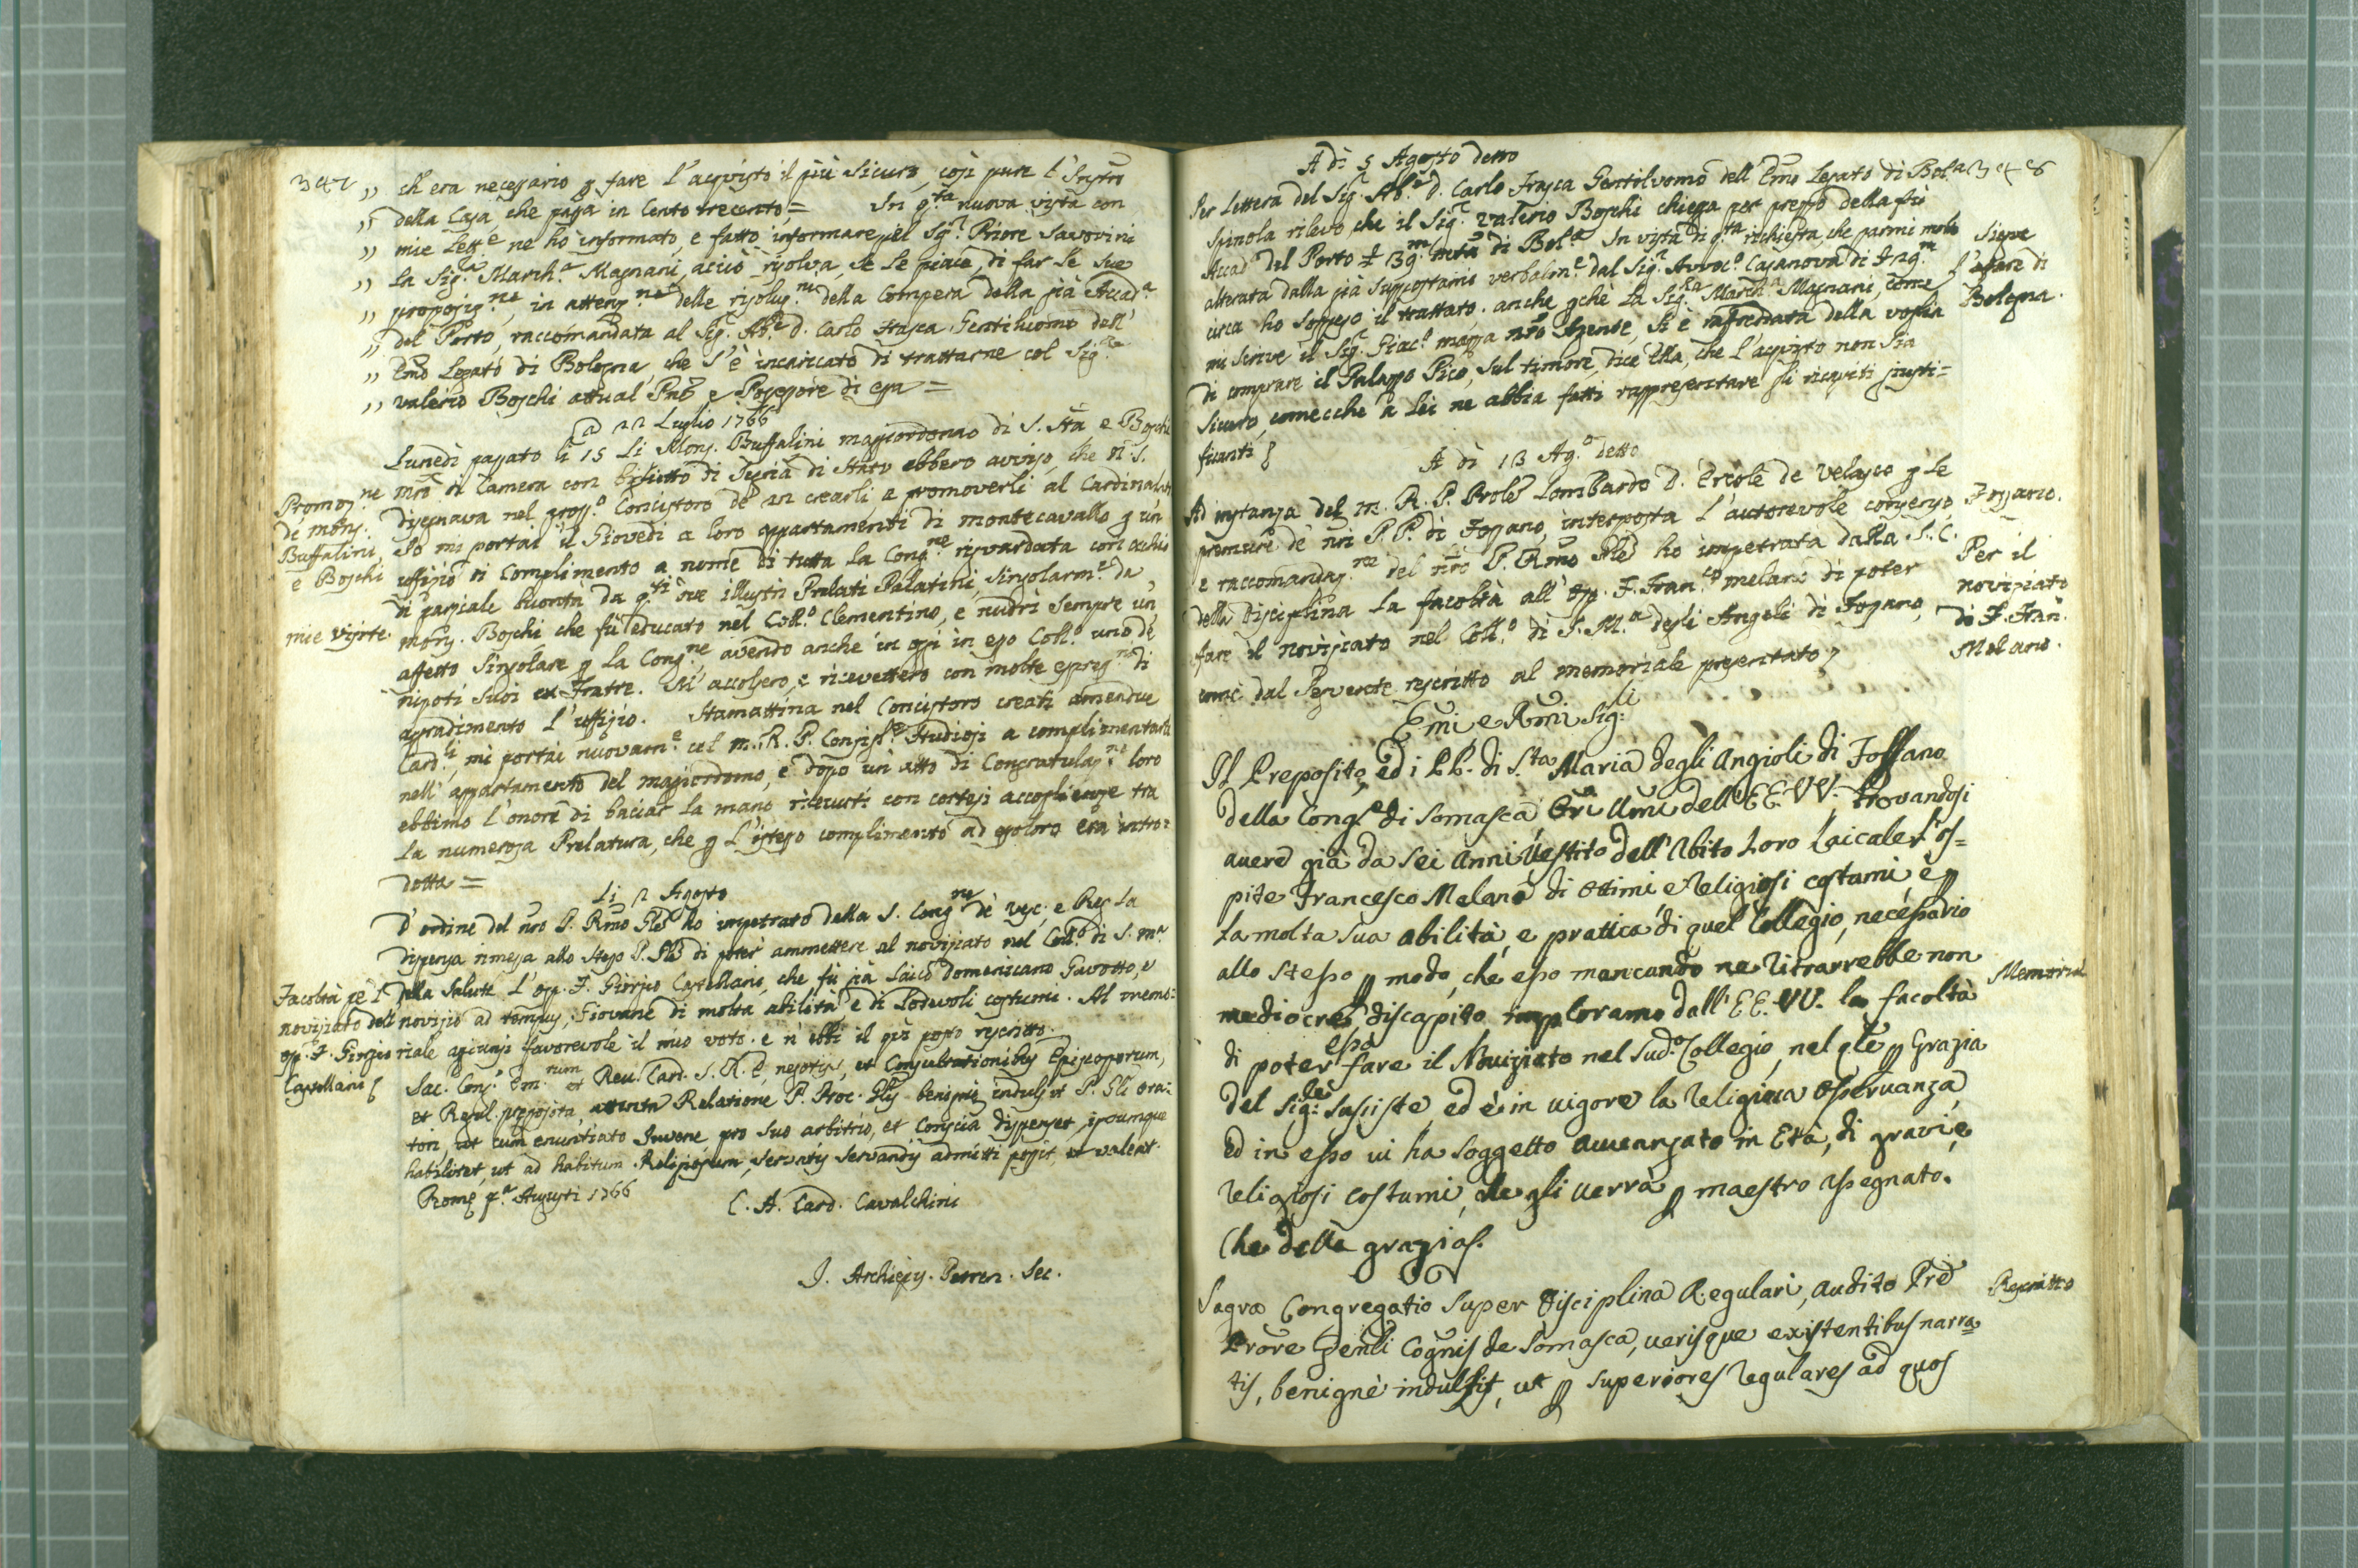 347
„ ch'era necessario p fare l'acquisto il più sicuro, così pure l'Instro
„ della Casa, che paga in Cento trecento = In q.ta nuova vista con
„ mie Lett.e ne hò informato, e fatto informare, il Sig.r Priore Savorini
„ La Sig.ra March.a Magnani, acciò risolva, se le piace, di far le sue
„ proposiz.ne, in attenz.ne delle risoluz.ni della Compera della già Accad.a
„ del Porto, raccomandata al Sig.r Ab.e D. Carlo Frasca Gentiluomo dell'
„ Emo Legato di Bologna che s'è incaricato di trattarne col Sig.r
„ Valerio Boschi attual Pnte e Possessore di essa =
a 21 Luglio 1766
Lunedì passato li 15 Li Mons. Buffalini maggiordomo di S. Stà e Boschi
Mro di Camera con biglietto di Segria di Stato ebbero avviso, che N. S.
Promoz.ne
di Mons.
Buffalini,
e Boschi
disegnava nel pross.o Concistoro de' 21 crearli, e promoverli al Cardinalato
Io mi portai il Giovedì a loro appartamenti di montecavallo p un
uffizio di Complimento a nome di tutta la Cong.ne risvardata con occhio
di parziale buontà da q.ti due illustri Prelati Palatini, singolarm.e da
mie visite.
Mons. Boschi che fù educato nel Coll.o Clementino, e nudrì sempre un
affetto singolare p la Cong.ne, avendo anche in oggi in esso Coll.o uno de'
nipoti suoi ex Fratre. Mi accolsero, e ricevettero con molte espress.ni di
agradimento l'uffizio. Stamattina nel Concistoro creati amendue
Card.li, mi portai nuovam.e col M. R. P. Consigl.e Studiosi a complimentarli
nell'appartamento del maggiordomo, e dopo un atto di Congratulaz.ne loro
ebbimo l'onore di baciar la mano ricevuti con cortesi accoglienze tra
la numerosa Prelatura, che p l'istesso complimento ad essoloro era intro=
dotta =
Li 2 Agosto
D'ordine del nro P. Rmo Gle ho impetrato della S. Cong.ne de' Vesc. e Reg. la
dispensa rimessa allo stesso P. Gle di poter ammettere al novisiato nel Coll.o di S. M.a
Facoltà pe 'l
novisiato dell'
osp. F. Giorgio
Castellani
della Salute l'osp. F. Giorgio Castellani, che fù già Laico Domenicano Gavotto, e
novisio ad tempus, Giovane di molta abilità, e di lodevoli costumi. Al memo=
riale agiunsi favorevole il mio voto. e n'ebbi il qui posto rescritto.
Sac. Cong. Em.rum et Rev. Card. S. R. E. negotijs, et Consultationibus Episcoporum,
et Regul. preposita, attenta Relatione P. Proc. Glis benigne indulsit P. Gli Ora=
tori, ut cum enuntiato Juvene pro suo arbitrio, et Conscia dispenset, ipsumque
habilitet, ut ad habitum Religiosum, servatis servandis admitti possit, et valeat.
Rome p.a Augusti 1766
C. A. Card. Cavalchini
J. Archiep. Petren. Sec.
A dì 5 Agosto detto
348
Per Lettera del Sig.r Ab.e D. Carlo Frasca Gentilvomo dell'Emo Legato di Bol.a
Spinola rilevo che il Sig.r Valerio Boschi chiegga per prezzo della fù
Accad. del Porto £ 13 m. mta di Bol.a In vista di q.ta richiesta, che parmi molto
alterata dalla già suppostami verbalm.e dal Sig.r Avvoc.o Casanova di £ 12 m.
circa ho sospeso il trattato. anche pchè la Sig.ra March.a Magnani, come
mi scrive il Sig.r Giac.o Mazza nro Agente, si è rafreddata della voglia
di comprare il Palazzo Pico, sul timore, dice Ella, che l'acquisto non sia
sicuro, comecche a Lei ne abbia fatti rappresentare gli ricapiti giusti=
ficanti
Siegue
l'afare di
Bologna.
A dì 13 Ag.o detto
Ad instanza del M. R. P. Prole Lombardo D. Ercole de Velasco p le
premure de' nri P.P. di Fossano, interposta l'autorevole consenso
e raccomandaz.ne del nro P. Rmo Gle ho impetrata dalla S. C.
della Disciplina la facoltà all'Osp. F. Fran.co Melano di poter
fare il novisiato nel Coll.o di S. M.a degli Angeli di Fossano,
come dal seguente rescritto al memoriale presentato
Fossano.
Per il
novisiato
di F. Fran.
Melano.
Emi, e Rmi Sig.li
Il Preposito, ed i PP. di S.ta Maria degli Angioli di Fossano
della Cong.e di Somasca Ori Umi dell'EE. VV. trovandosi
avere già da sei anni vestito dell'Abito loro Laicale l'os=
pite Francesco Melano di ottimi e Religiosi costumi, e p
la molta sua abilità, e pratica di quel Collegio, necessario
allo stesso p modo, che esso mancando ne ritrarrebbe non
mediocre discapito implorano dall'EE. VV. la facoltà
Memorial
di poter esso fare il Noviziato nel sud.o Collegio, nel qle p Grazia
del Sig.re sussiste, ed è in vigore la Religiosa osservanza,
ed in esso vi ha soggetto avvanzato in Età, di gravi, e
religiosi costumi, che gli verrà p maestro assegnato.
Che della grazia.
Sagra Congregatio super Disciplina Regulari, audito Pre
Rescritto
Prore Genli Cognis de Somasca, verisque existentibus narra
tis, benigne indulsit, ut p superiores Regulares ad quos